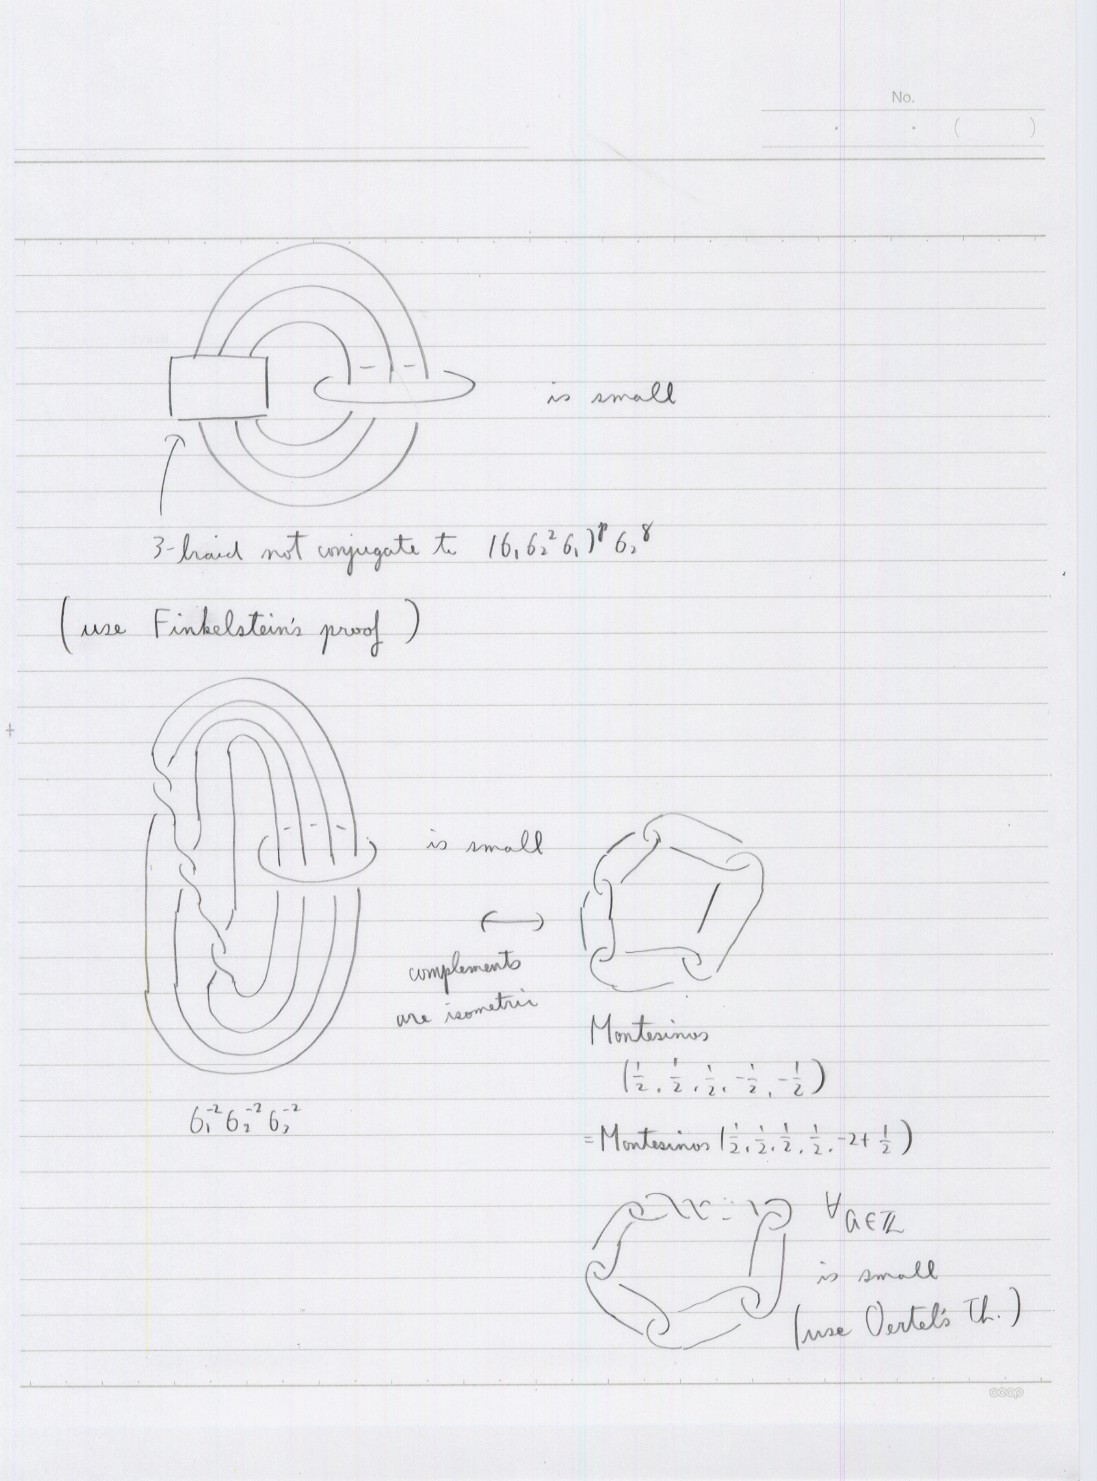 No.
. . ( )
is small
3-braid not conjugate to (σ₁σ₂²σ₁)ᵖσ₂^q
(use Finkelstein's proof)
is small
complements
are isometric
Montesinos
(1/2, 1/2, 1/2, -1/2, -1/2)
σ₁⁻²σ₂⁻²σ₃⁻²
= Montesinos (1/2, 1/2, 1/2, 1/2, -2+1/2)
∀a∈ℤ
is small
(use Oertel's Th.)